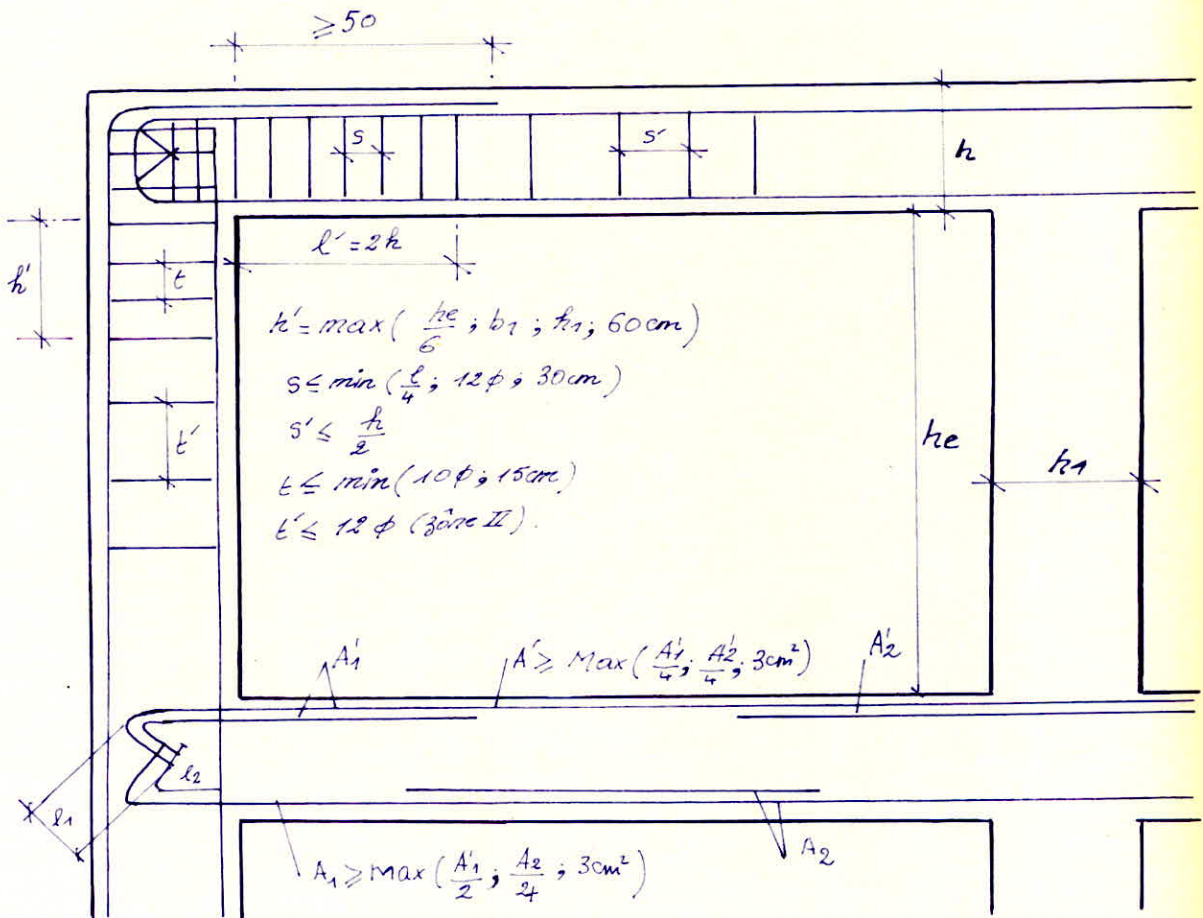 ≥50
s
s'
h
l' = 2h
h'
t
h' = max( he/6 ; b1 ; h1 ; 60cm)
s ≤ min ( l/4 ; 12ϕ ; 30cm )
s' ≤ h/2
t ≤ min(10ϕ ; 15cm)
t' ≤ 12 ϕ (zône II).
t'
he
h1
A'1
A' ≥ Max( A'1/4 ; A'2/4 ; 3cm²)
A'2
l2
l1
A1 ≥ max( A'1/2 ; A2/4 ; 3cm²)
A2